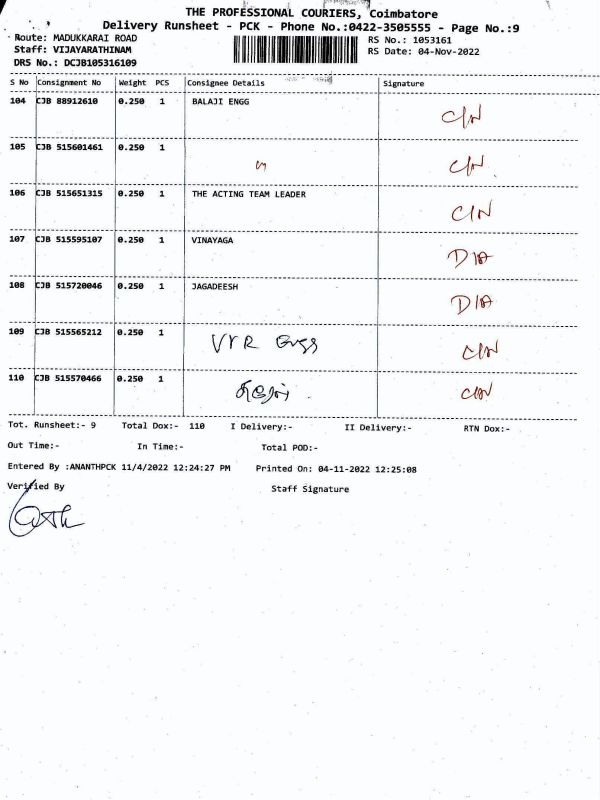 THE PROFESSIONAL COURIERS, Coimbatore
Delivery Runsheet - PCK - Phone No.:0422-3505555 - Page No.:9
Route: MADUKKARAI ROAD
RS No.: 1053161
Staff: VIJAYARATHINAM
RS Date: 04-Nov-2022
DRS No.: DCJB105316109
S No Consignment No Weight PCS Consignee Details Signature
104 CJB 88912610 0.250 1 BALAJI ENGG C/N
105 CJB 515601461 0.250 1 C/N
106 CJB 515651315 0.250 1 THE ACTING TEAM LEADER C/N
107 CJB 515595107 0.250 1 VINAYAGA D/A
108 CJB 515720046 0.250 1 JAGADEESH D/A
109 CJB 515565212 0.250 1 VVR Engg C/N
110 CJB 515570466 0.250 1 C/N
Tot. Runsheet:- 9 Total Dox:- 110 I Delivery:- II Delivery:- RTN Dox:-
Out Time:- In Time:- Total POD:-
Entered By :ANANTHPCK 11/4/2022 12:24:27 PM Printed On: 04-11-2022 12:25:08
Verified By Staff Signature